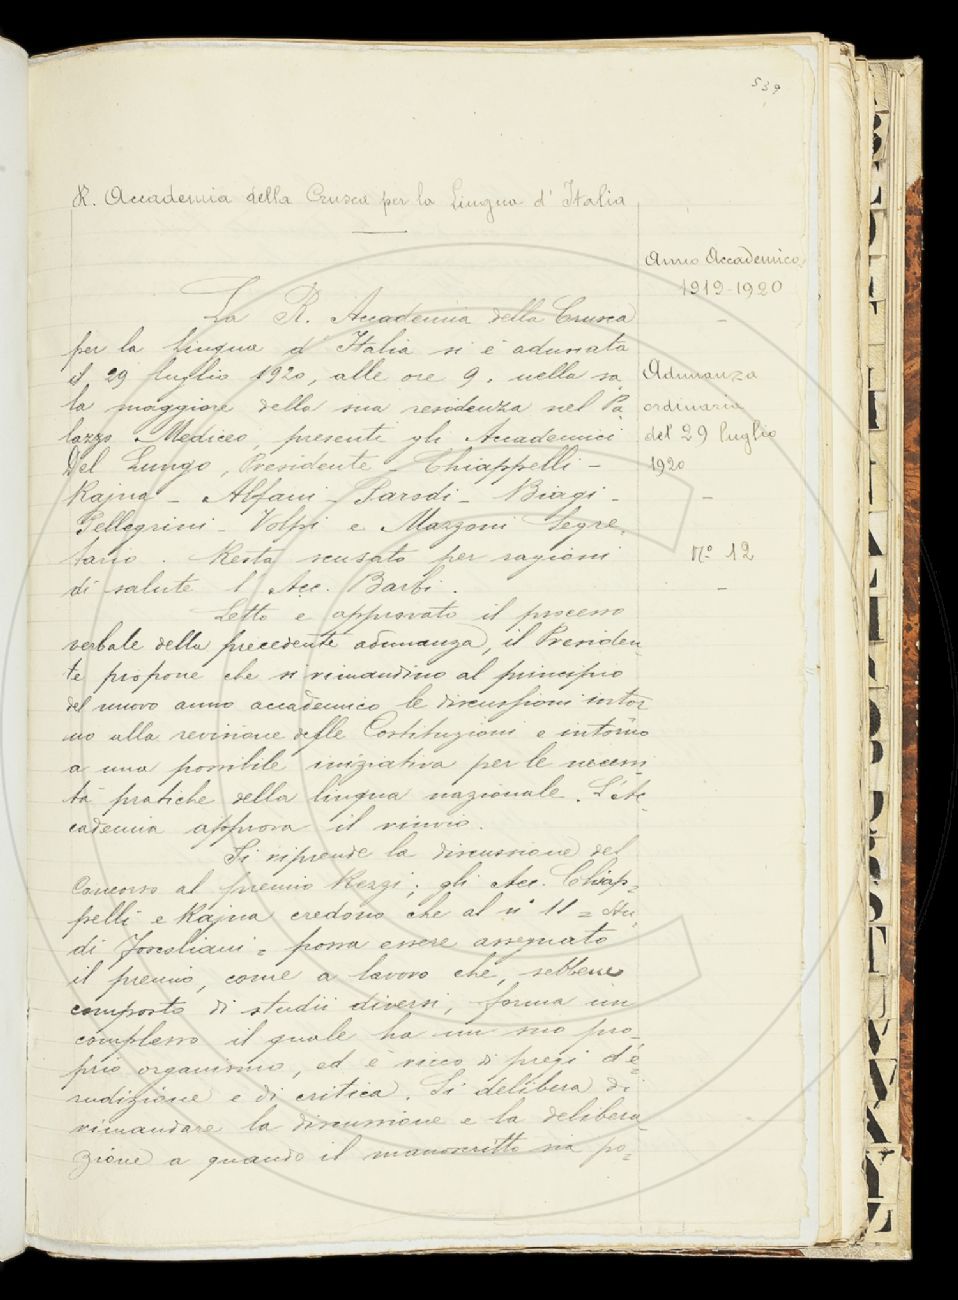 539
R. Accademia della Crusca per la Lingua d'Italia
Anno Accademico
1919-1920
Adunanza
ordinaria
del 29 luglio
1920
N.° 12
La R. Accademia della Crusca
per la Lingua d'Italia si è adunata
il 29 luglio 1920, alle ore 9, nella sa
la maggiore della sua residenza nel Pa
lazzo Mediceo, presenti gli Accademici
Del Lungo, Presidente - Chiappelli -
Rajna - Alfani - Parodi - Biagi -
Pellegrini - Volpi e Mazzoni Segre
tario. Resta scusato per ragioni
di salute l'Acc. Barbi.
Letto e approvato il processo
verbale della precedente adunanza, il Presiden
te propone che si rimandino al principio
del nuovo anno accademico le discussioni intor
no alla revisione delle Costituzioni e intorno
a una possibile iniziativa per le necessi
tà pratiche della lingua nazionale. L'Ac
cademia approva il rinvio.
Si riprende la discussione del
Concorso al premio Rezzi; gli Acc. Chiap=
pelli e Rajna credono che al n° 11 = Stu
di Foscoliani = possa essere assegnato
il premio, come a lavoro che, sebbene
composto di studii diversi, forma un
complesso il quale ha un suo pro
prio organismo, ed è ricco di pregi d'e
rudizione e di critica. Si delibera di
rimandare la discussione e la delibera
zione a quando il manoscritto sia po=